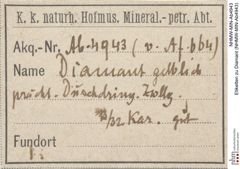 K. k. naturh. Hofmus. Mineral.-petr. Abt.
Akq.-Nr. Ab 4943 (v. Af. 664)
Name Diamant gelblich
pracht. Durchdring. Zwllg.
/32 Kar. gut
Fundort
NHMW-MIN-Ab4943
Etiketten zu Diamant (NHMW-MIN-Ab4943)